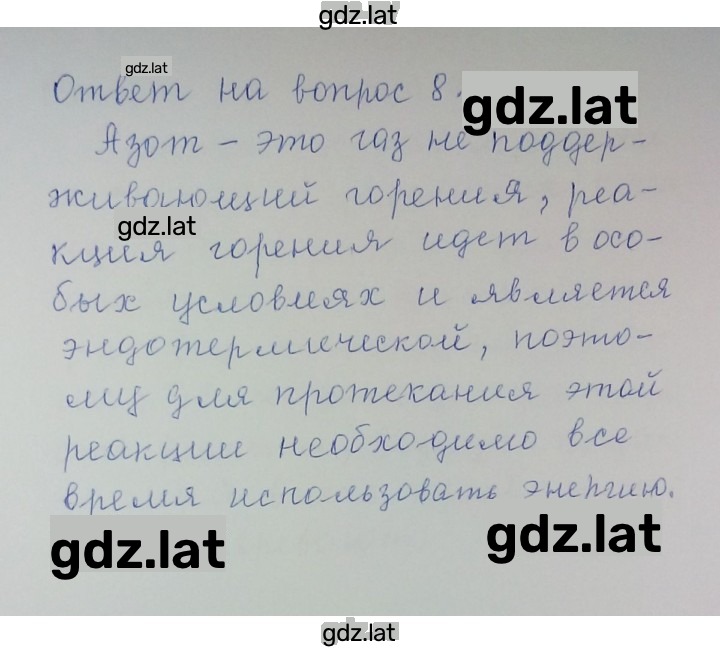 gdz.lat
gdz.lat
Ответ на вопрос 8.
gdz.lat
Азот - это газ не поддер-
живающий горения, реа-
gdz.lat
кция горения идет в осо-
бых условиях и является
эндотермической, поэто-
му для протекания этой
реакции необходимо все
время использовать энергию.
gdz.lat
gdz.lat
gdz.lat